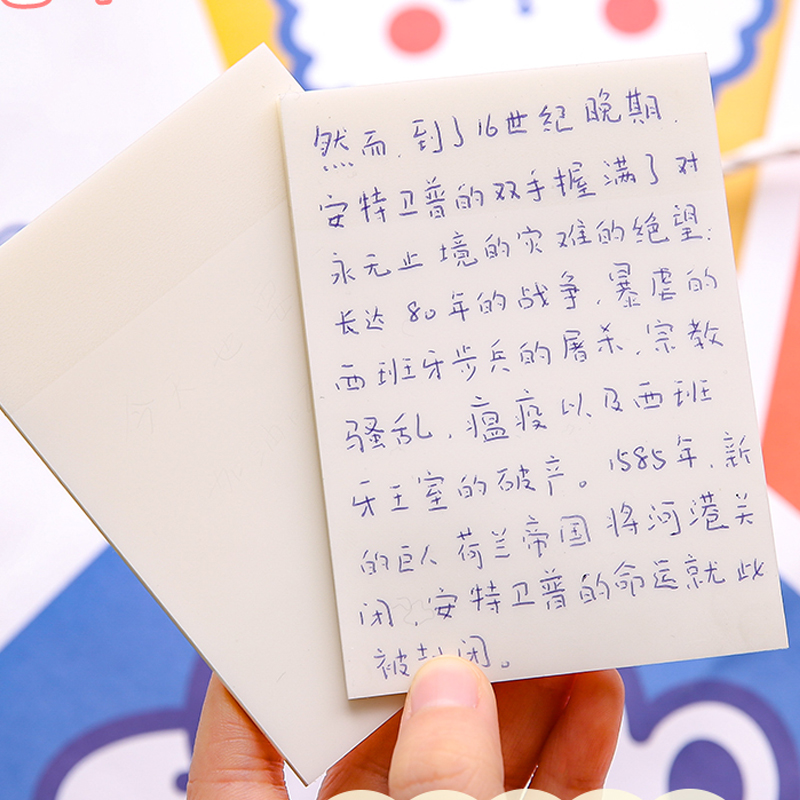 然而，到了16世纪晚期，
安特卫普的双手握满了对
永无止境的灾难的绝望：
长达80年的战争，暴虐的
西班牙步兵的屠杀，宗教
骚乱，瘟疫以及西班
牙王室的破产。1585年，新
的巨人荷兰帝国将河港关
闭，安特卫普的命运就此
被封闭。